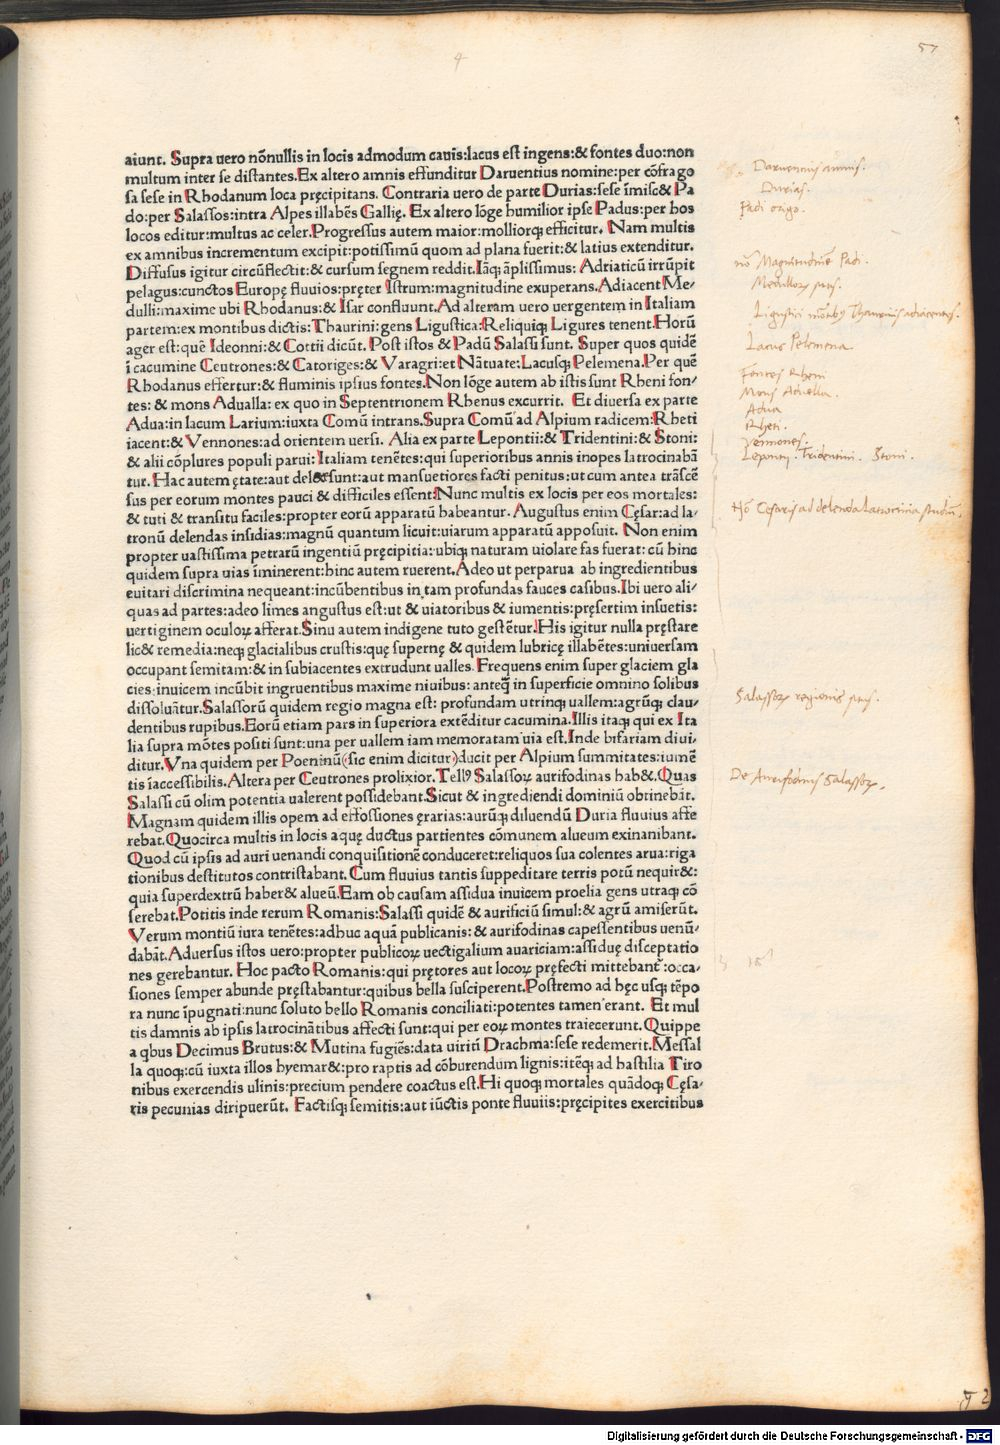 57
4
aiunt. Supra uero nõnullis in locis admodum cauis:lacus est ingens:& fontes duo:non
multum inter se distantes.Ex altero amnis effunditur Daruentius nomine:per cõfrago
sa sese in Rhodanum loca pręcipitans. Contraria uero de parte Durias:sese ĩmisc& Pa
do:per Salassos:intra Alpes illabẽs Gallię. Ex altero lõge humilior ipse Padus:per hos
locos editur:multus ac celer.Progressus autem maior:molliorq; efficitur. Nam multis
ex amnibus incrementum excipit:potissimũ quom ad plana fuerit:& latius extenditur.
Diffusus igitur circũflectit:& cursum segnem reddit.Iãq; ãplissimus: Adriaticũ irrũpit
pelagus:cunctos Europę fluuios:pręter Istrum:magnitudine exuperans.Adiacent Me-
dulli:maxime ubi Rhodanus:& Isar confluunt.Ad alteram uero uergentem in Italiam
partem:ex montibus dictis:Thaurini:gens Ligustica:Reliquiq; Ligures tenent.Horũ
ager est:quẽ Ideonni:& Cottii dicũt. Post istos & Padũ Salassi sunt. Super quos quidẽ
ĩ cacumine Ceutrones:& Catoriges:& Varagri:et Nãtuate:Lacusq; Pelemena.Per quẽ
Rhodanus effertur:& fluminis ipsius fontes.Non lõge autem ab istis sunt Rheni fon-
tes:& mons Adualla: ex quo in Septentrionem Rhenus excurrit. Et diuersa ex parte
Adua:in lacum Larium:iuxta Comũ intrans.Supra Comũ ad Alpium radicem:Rheti
iacent:& Vennones:ad orientem uersi. Alia ex parte Lepontii:& Tridentini:& Stoni:
& alii cõplures populi parui:Italiam tenẽtes:qui superioribus annis inopes latrocinabã
tur. Hac autem ętate:aut del& sunt:aut mansuetiores facti penitus:ut cum antea trãscẽ
sus per eorum montes pauci & difficiles essent:Nunc multis ex locis per eos mortales:
& tuti & transitu faciles:propter eorũ apparatũ habeantur. Augustus enim Cęsar:ad la-
tronũ delendas insidias:magnũ quantum licuit:uiarum apparatũ apposuit. Non enim
propter uastissima petrarũ ingentiũ pręcipitia:ubiq; naturam uiolare fas fuerat: cũ hinc
quidem supra uias ĩminerent:hinc autem ruerent.Adeo ut perparua ab ingredientibus
euitari discrimina nequeant:incũbentibus in tam profundas fauces casibus.Ibi uero ali-
quas ad partes:adeo limes angustus est:ut & uiatoribus & iumentis:pręsertim insuetis:
uertiginem oculoꝝ afferat.Sinu autem indigene tuto gestẽtur.His igitur nulla pręstare
lic& remedia:neq; glacialibus crustis:quę supernę & quidem lubricę illabẽtes:uniuersam
occupant semitam:& in subiacentes extrudunt ualles. Frequens enim super glaciem gla
cies:inuicem incũbit ingruentibus maxime niuibus: anteq̃ in superficie omnino solibus
dissoluãtur. Salassorũ quidem regio magna est: profundam utrinq; uallem:agrũq; clau-
dentibus rupibus.Eorũ etiam pars in superiora extẽditur cacumina.Illis itaq; qui ex Ita
lia supra mõtes positi sunt:una per uallem iam memoratam uia est.Inde bifariam diui-
ditur. Vna quidem per Poeninũ(sic enim dicitur)ducit per Alpium summitates:iumẽ
tis ĩaccessibilis. Altera per Ceutrones prolixior.Tellꝰ Salassoꝝ aurifodinas hab&.Quas
Salassi cũ olim potentia ualerent possidebant.Sicut & ingrediendi dominiũ obtinebãt.
Magnam quidem illis opem ad effossiones ęrarias:aurũq; diluendũ Duria fluuius affe
rebat.Quocirca multis in locis aquę ductus partientes cõmunem alueum exinanibant.
Quod cũ ipsis ad auri uenandi conquisitionẽ conduceret:reliquos sua colentes arua:riga
tionibus destitutos contristabant. Cum fluuius tantis suppeditare terris potũ nequir&:
quia superdextrũ haber& alueũ.Eam ob causam assidua inuicem proelia gens utraq; cõ
serebat.Potitis inde rerum Romanis:Salassi quidẽ & aurificiũ simul:& agrũ amiserũt.
Verum montiũ iura tenẽtes:adhuc aquã publicanis:& aurifodinas capessentibus uenũ-
dabãt.Aduersus istos uero:propter publicoꝝ uectigalium auariciam:assiduę disceptatio
nes gerebantur. Hoc pacto Romanis:qui prętores aut locoꝝ pręfecti mittebant:occa-
siones semper abunde pręstabantur:quibus bella susciperent.Postremo ad hęc usq; tẽpo
ra nunc ĩpugnati:nunc soluto bello Romanis conciliati:potentes tamen erant. Et mul
tis damnis ab ipsis latrocinãtibus affecti sunt:qui per eoꝝ montes traiecerunt.Quippe
a qbus Decimus Brutus:& Mutina fugiẽs:data uiriti Drachma:sese redemerit.Messal
la quoq;:cũ iuxta illos hyemar&:pro raptis ad cõburendum lignis:itẽq; ad hastilia Tiro
nibus exercendis ulinis:precium pendere coactus est.Hi quoq; mortales quãdoq; Cęsa-
ris pecunias diripuerũt. Factisq; semitis:aut iũctis ponte fluuiis:pręcipites exercitibus
Daruencius amnis.
Durias.
Padi origo.
Magnitudinẽ Padi.
Medulloꝝ
Ligustici mõtibꝫ Thaurinis adiacentes.
Lacus Pelemena
Fontes Rheni
Mons Aduella.
Adua
Rheti.
Vennones.
Lepontij. Tridentini. Stoni.
Cesaris ad delenda latrocinia studiũ.
Salassoꝝ regionis
De Aurifodinis Salassoꝝ.
Digitalisierung gefördert durch die Deutsche Forschungsgemeinschaft - DFG